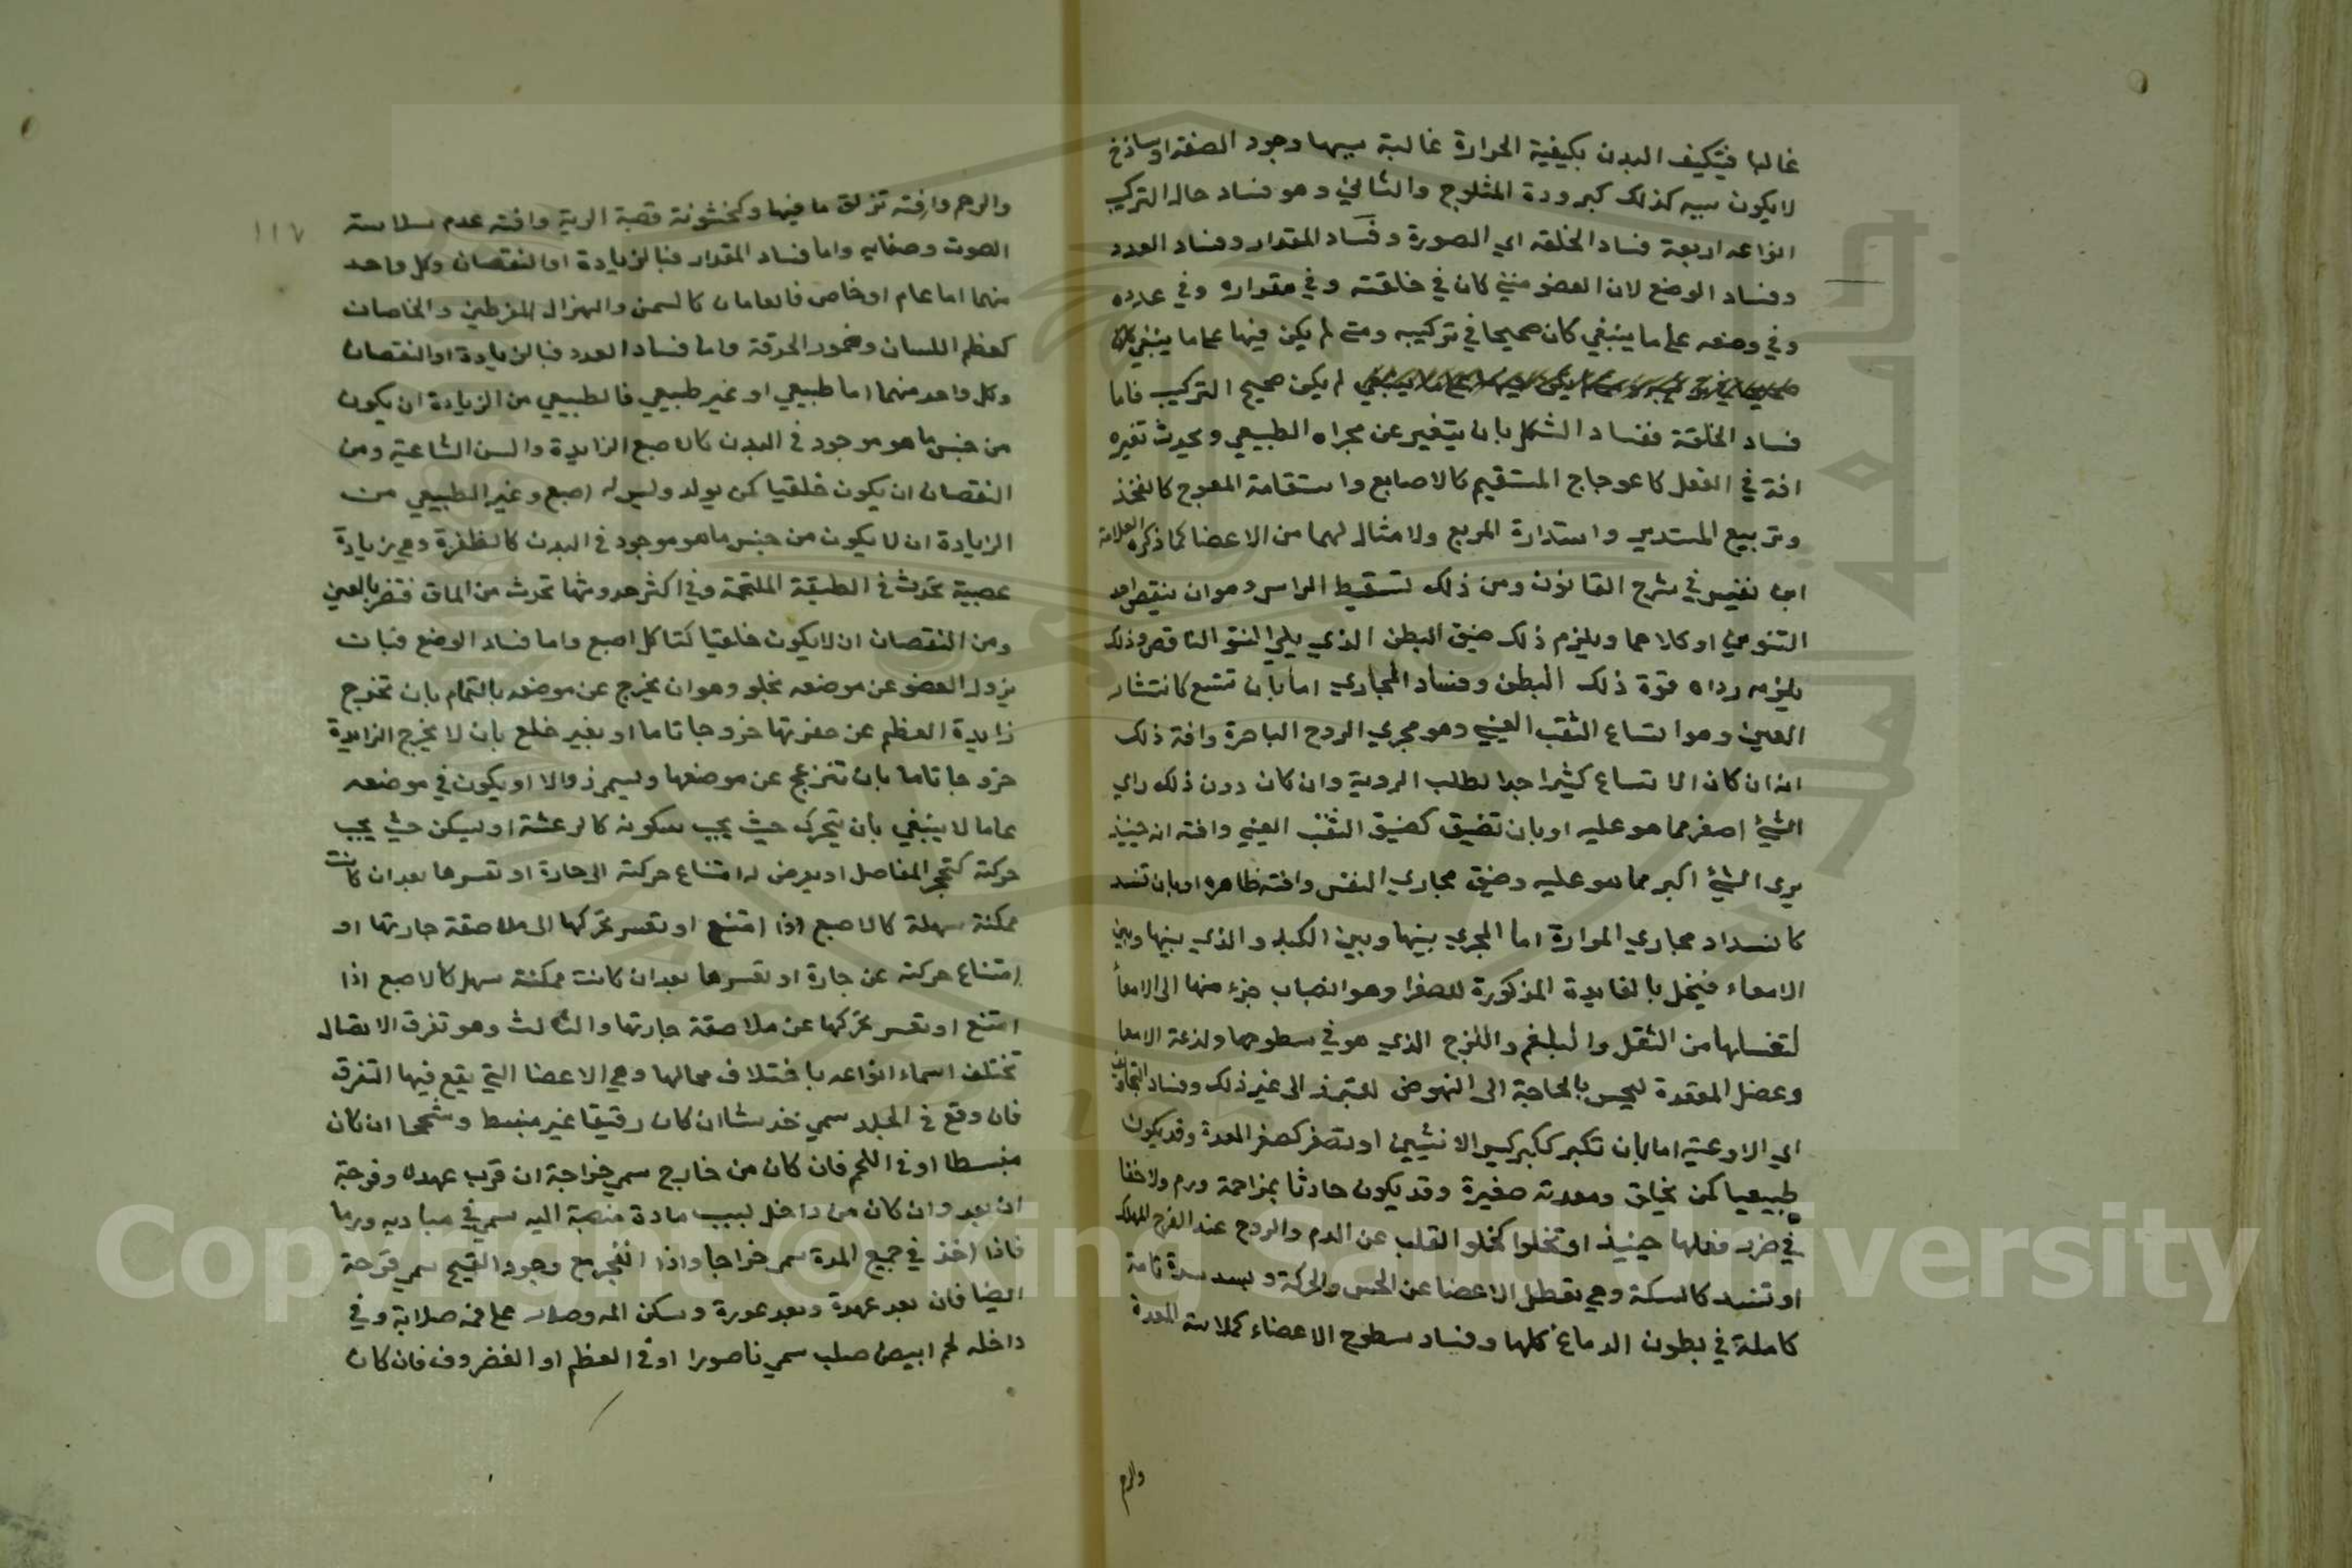 غالبا فيتكيف البدن بكيفية الحرارة غالبة سببها وجود الصفة اوساذخ
لايكون سببه كذلك كبرودة المثلوج والثاني وهو فساد حال التركيب
انواعه اربعة فساد الخلقه اي الصورة وفساد المقدار وفساد العدد
وفساد الوضع لان العضو متي كان في خلقته وفي مقداره وفي عدده
وفي وضعه علي ما ينبغي كان صحيحا في تركيبه ومتي لم يكن فيها علي ما ينبغي
لم يكن صحيح التركيب فاما
فساد الخلقة ففساد الشكل بان يتغير عن مجراه الطبيعي ويحدث تغيره
افة في الفعل كاعوجاج المستقيم كالاصابع واستقامة المعوج كالفخذ
وتربيع المستدير واستدارة المربع ولا مثال لهما من الاعضا كما ذكره العلامة
ابن نفيس في شرح القانون ومن ذلك تسقيط الراس وهو ان ينقص احد
التنوين او كلاهما ويلزم ذلك ضيق البطن الذي يلي النتو الناقص وذلك
يلزمه رداه قوة ذلك البطن وفساد المجاري اما بان تتسع كانتشار
العين وهو اتساع الثقب العيني وهو مجري الروح الباصرة وافة ذلك
انه ان كان الاتساع كثيرا جدا بطلب الروية وان كان دون ذلك راي
الشيئ اصغر مما هو عليه او بان تضيق كضيق الثقب العيني وافته انه حينيذ
يري الشيئ اكبر مما هو عليه وضيق مجاري النفس وافته ظاهره او بان تنسد
كانسداد مجاري المرارة اما المجري بينها وبين الكبد والذي بينها وبين
الامعاء فيخل بالفايدة المذكورة للصفرا وهو انصباب جزء منها الي الامعأ
لتغسلها من الثقل والبلغم واللزج الذي هو في سطوحها ولذعة الامعا
وعضل المقعدة ليحس بالحاجة الي النهوض للتبرز الي غير ذلك وفساد التجاويف
اي الاوعية اما بان تكبر ككبر كيس الانثيين او تصغر كصغر المعدة وقد يكون
طبيعيا كمن يخلق ومعدته صغيرة وقد يكون حادثا بمزاحمة ورم ولا خفا
في ضرر فعلها حينيذ او تخلوا كخلو القلب عن الدم والروح عند الفرح المهلك
او تنسد كالسكتة وهي تعطل الاعضا عن الحس والحركة و سدة تامة
كاملة في بطون الدماغ كلها وفساد سطوح الاعضاء كملاسة المعدة
والرحم
١١٧
والرحم وافته تزلق ما فيها وكخشونة قصبة الرية وافته عدم سلاسة
الصوت وصفايه واما فساد المقدار فبالزيادة او النقصان وكل واحد
منهما اما عام او خاص فالعامان كالسمن والهزال المفرطين والخاصان
كعظم اللسان وضمور الحدقة واما فساد العدد فبالزيادة او النقصان
وكل واحد منهما اما طبيعي او غير طبيعي فالطبيعي من الزيادة ان يكون
من جنس ما هو موجود في البدن كالاصبع الزايدة والسن الشاغية ومن
النقصان ان يكون خلقيا كمن يولد وليس له اصبع وغير الطبيعي من
الزيادة ان لا يكون من جنس ما هو موجود في البدن كالظفرة وهي زيادة
عصبية تحدث في الطبقة الملتحمة وفي اكثر حدوثها تحدث من الماق فتضر بالعين
ومن النقصان ان لا يكون خلقيا كتاكل اصبع واما فساد الوضع فبان
يزول العضو عن موضعه بخلو وهو ان يخرج عن موضعه بالتمام بان تخرج
زايدة العظم عن حفرتها خروجا تاما او بغير خلع بان لا يخرج الزايدة
خروجا تاما بان تنزعج عن موضعها ويسمي زوالا او يكون في موضعه
علي ما لا ينبغي بان يتحرك حيث يجب سكونه كالرعشة او ليسكن حيث يجب
حركته كتحجر المفاصل او يعرض له امتناع حركته الي جارة او تعسرها بعد ان كانت
ممكنة سهلة كالاصبع اذا امتنع او تعسر تحركها الي ملاصقة جارتها او
امتناع حركته عن جارة او تعسرها بعد ان كانت ممكنة سهل كالاصبع اذا
امتنع او تعسر تحركها عن ملاصقة جارتها والثالث وهو تفرق الاتصال
تختلف اسماء انواعه باختلاف محالها وهي الاعضا التي يقع فيها التفرق
فان وقع في الجلد سمي خدشا ان كان رقيقا غير منبسط وسحجا ان كان
منبسطا او في اللحم فان كان من خارج سمي جراحة ان قرب عهده وقرحة
ان بعد وان كان من داخل لسبب مادة منصبة اليه سمي في مباديه ورما
فاذا اخذ في جمع المدة سمي خراجا واذا انفجر مع وجود القيح سمي قرحة
ايضا فان بعد عهدة وبعد عورة وسكن المه وصار علي فمه صلابة وفي
داخله لحم ابيض صلب سمي ناصورا او في العظم او الغضروف فان كان
Copyright © King Saud University